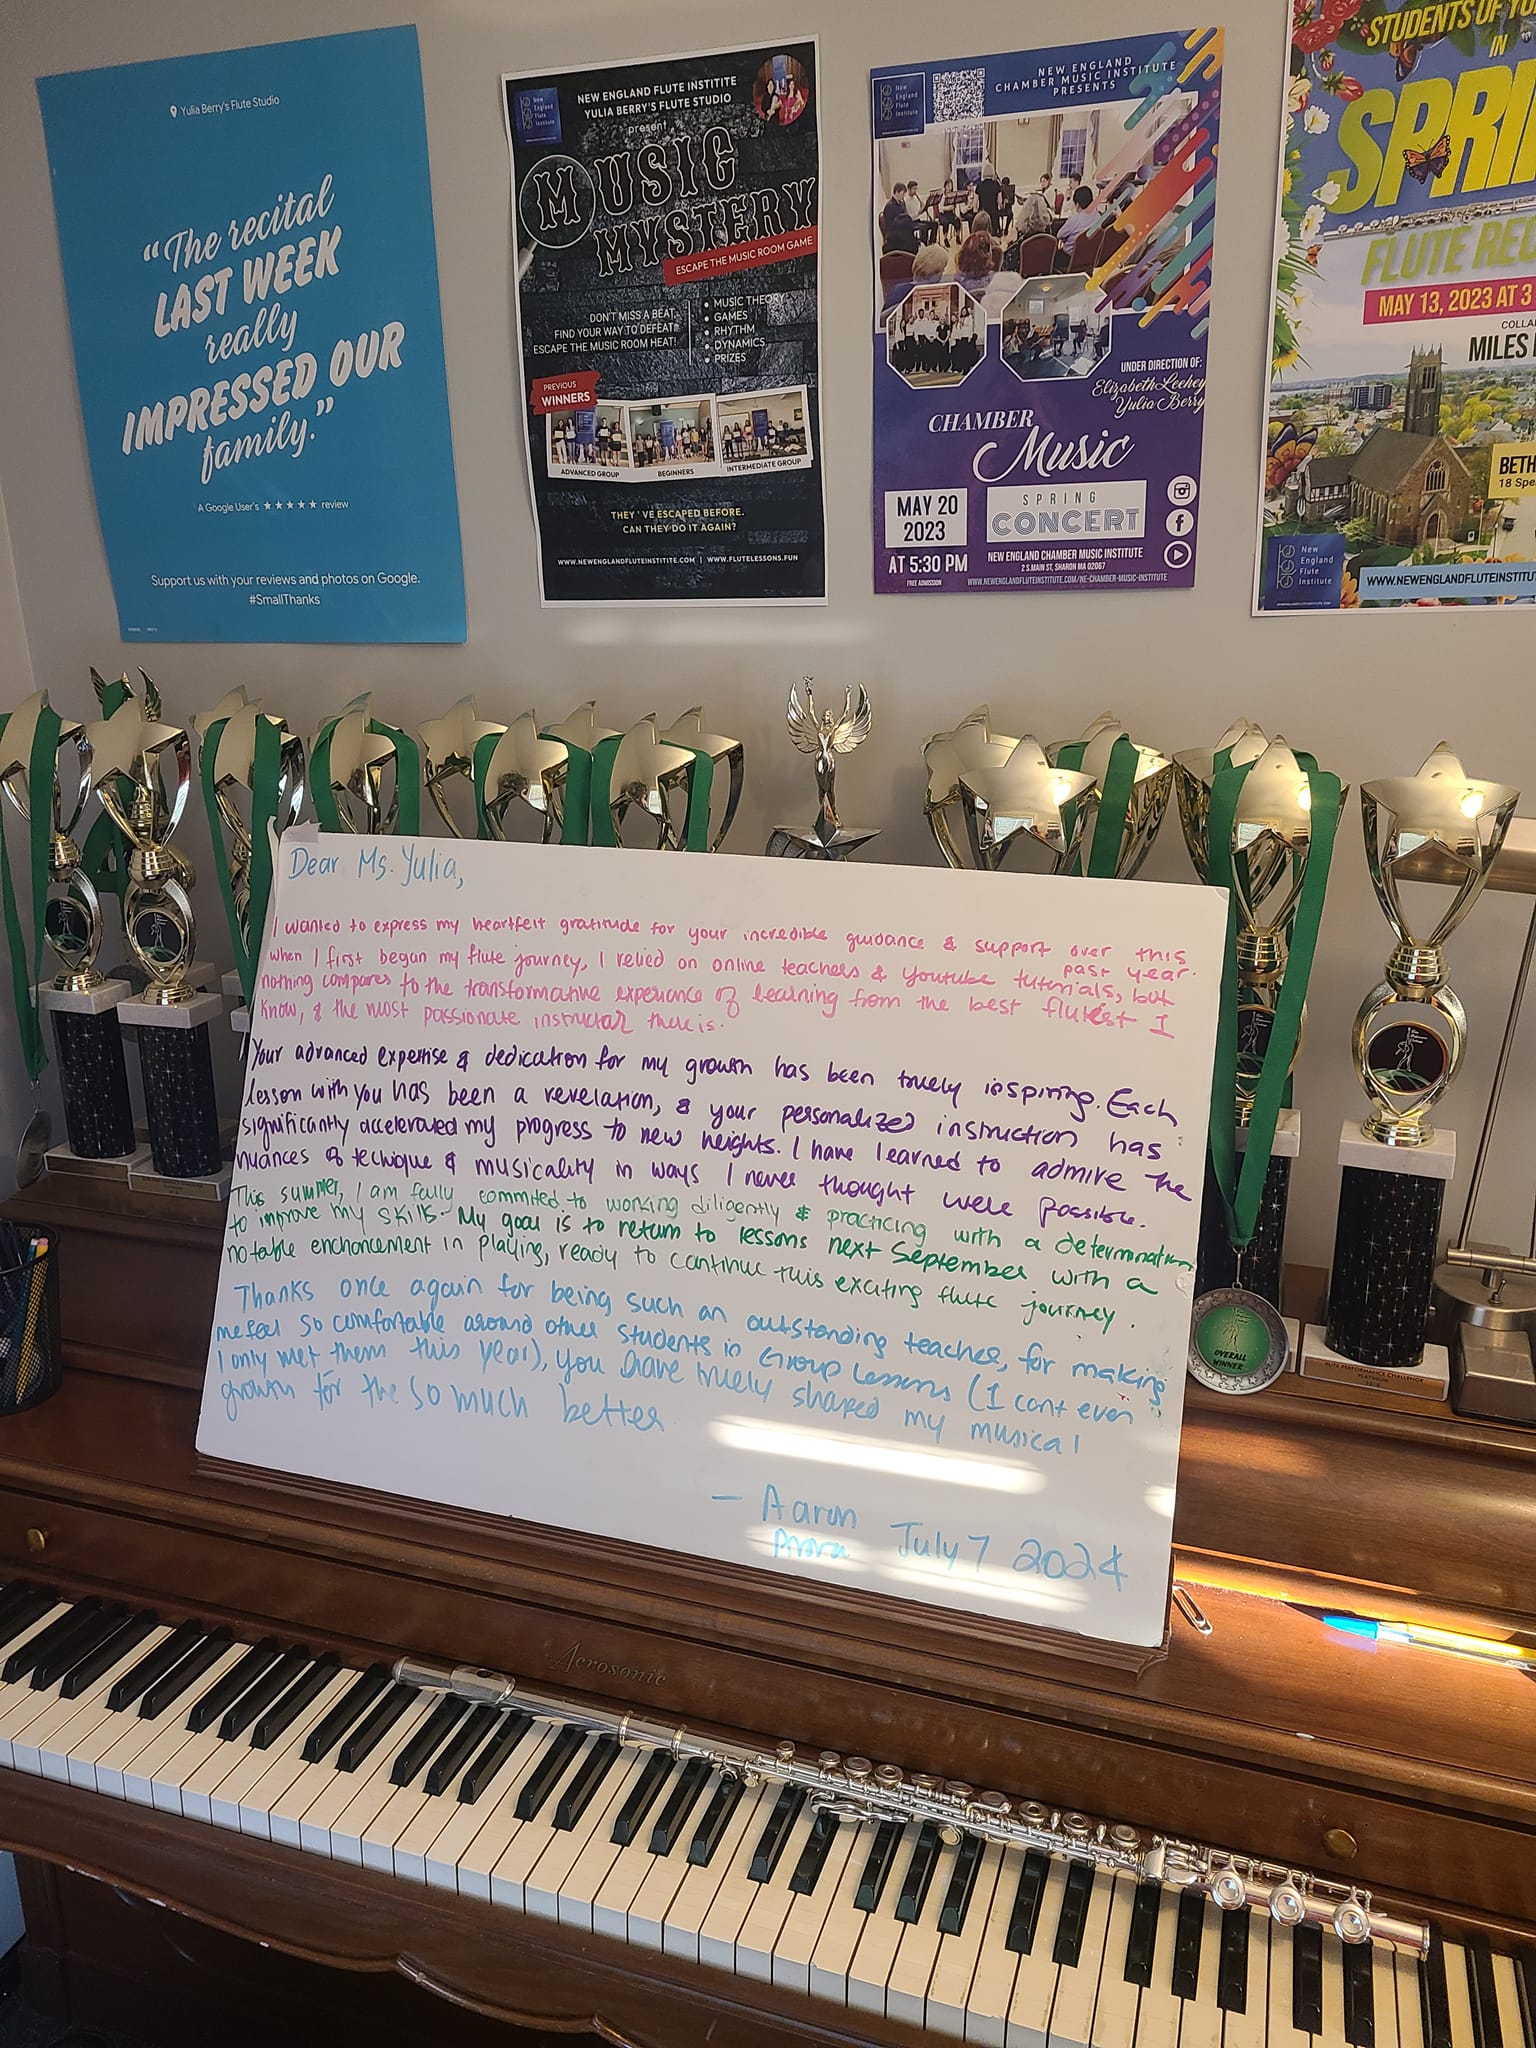 Yulia Berry's Flute Studio
"The recital
LAST WEEK
really
IMPRESSED OUR
family."
A Google User's ★★★★★ review
Support us with your reviews and photos on Google.
#SmallThanks
New
England
Flute
Institute
NEW ENGLAND FLUTE INSTITITE
YULIA BERRY'S FLUTE STUDIO
present
MUSIC
MYSTERY
ESCAPE THE MUSIC ROOM GAME
DON'T MISS A BEAT,
FIND YOUR WAY TO DEFEAT!
ESCAPE THE MUSIC ROOM HEAT!
• MUSIC THEORY
• GAMES
• RHYTHM
• DYNAMICS
• PRIZES
PREVIOUS
WINNERS
ADVANCED GROUP
BEGINNERS
INTERMEDIATE GROUP
THEY'VE ESCAPED BEFORE.
CAN THEY DO IT AGAIN?
WWW.NEWENGLANDFLUTEINSTITITE.COM | WWW.FLUTELESSONS.FUN
New
England
Flute
Institute
NEW ENGLAND
CHAMBER MUSIC INSTITUTE
PRESENTS
UNDER DIRECTION OF:
Elizabeth Leehey
Yulia Berry
CHAMBER
Music
MAY 20
2023
AT 5:30 PM
FREE ADMISSION
SPRING
CONCERT
NEW ENGLAND CHAMBER MUSIC INSTITUTE
2 S.MAIN ST, SHARON MA 02067
WWW.NEWENGLANDFLUTEINSTITUTE.COM/NE-CHAMBER-MUSIC-INSTITUTE
STUDENTS OF YU
IN
SPRI
FLUTE REC
MAY 13, 2023 AT 3
COLLA
MILES
BETH
18 Spe
New
England
Flute
Institute
WWW.NEWENGLANDFLUTEINSTIT
Dear Ms. Yulia,
I wanted to express my heartfelt gratitude for your incredible guidance & support over this
past year.
When I first began my flute journey, I relied on online teachers & youtube tutorials, but
nothing compares to the transformative experience of learning from the best flutest I
know, & the most passionate instructor there is.
Your advanced expertise & dedication for my growth has been truely inspiring. Each
lesson with you has been a revelation, & your personalized instruction has
significantly accelerated my progress to new heights. I have learned to admire the
nuances of techique & musicality in ways I never thought were possible.
This summer, I am fully commited to working diligently & practicing with a determination
to improve my skills. My goal is to return to lessons next September with a
notable enchancement in playing, ready to continue this exciting flute journey.
Thanks once again for being such an outstanding teacher, for making
me feel so comfortable around other students in Group Lessons (I cant even
I only met them this year), you have truely shaped my musical
growth for the so much better
— Aaron July 7 2024
Arora
OVERALL
WINNER
FLUTE PERFORMANCE CHALLENGE
PLATINUM
Acrosonic